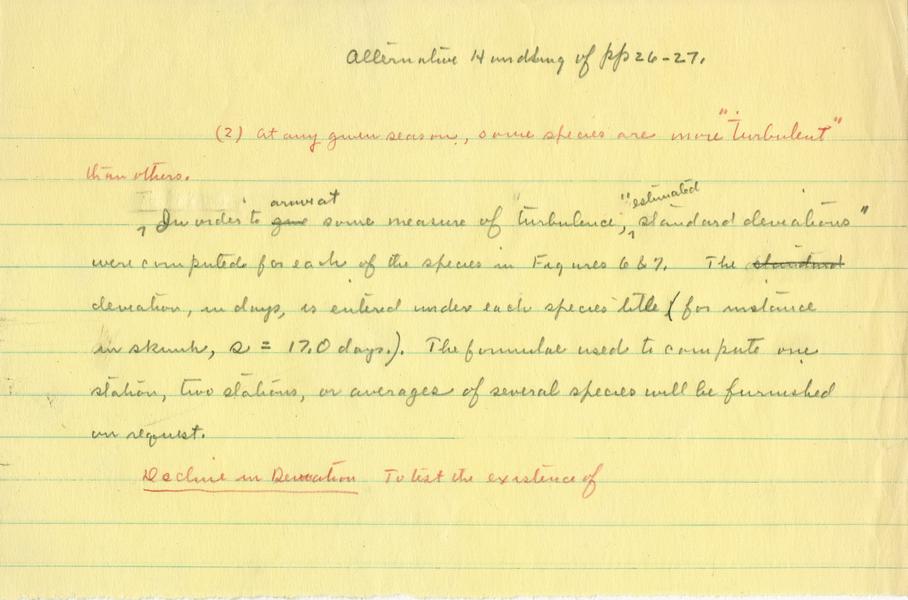 Alternative Handling of pp 26-27.
(2) At any given season, some species are more "turbulent"
than others.
arrive at "estimated
In order to give some measure of "turbulence", standard deviations"
were computed for each of the species in Figures 6 & 7. The standard
deviation, in days, is entered under each species title (for instance
in skunk, s = 17.0 days.). The formulae used to compute one
station, two stations, or averages of several species will be furnished
on request.
Decline in Deviation To test the existence of